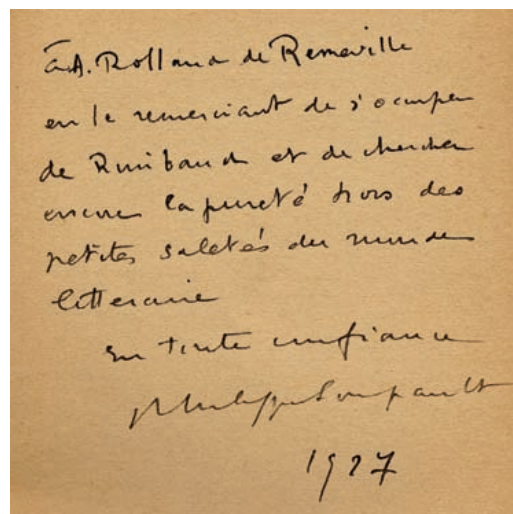 à A. Rolland de Remeville
en le remerciant de s'occuper
de Rimbaud et de chercher
encore la pureté hors des
petites saletés du monde
litteraire
En toute confiance
Philippe Soupault
1927